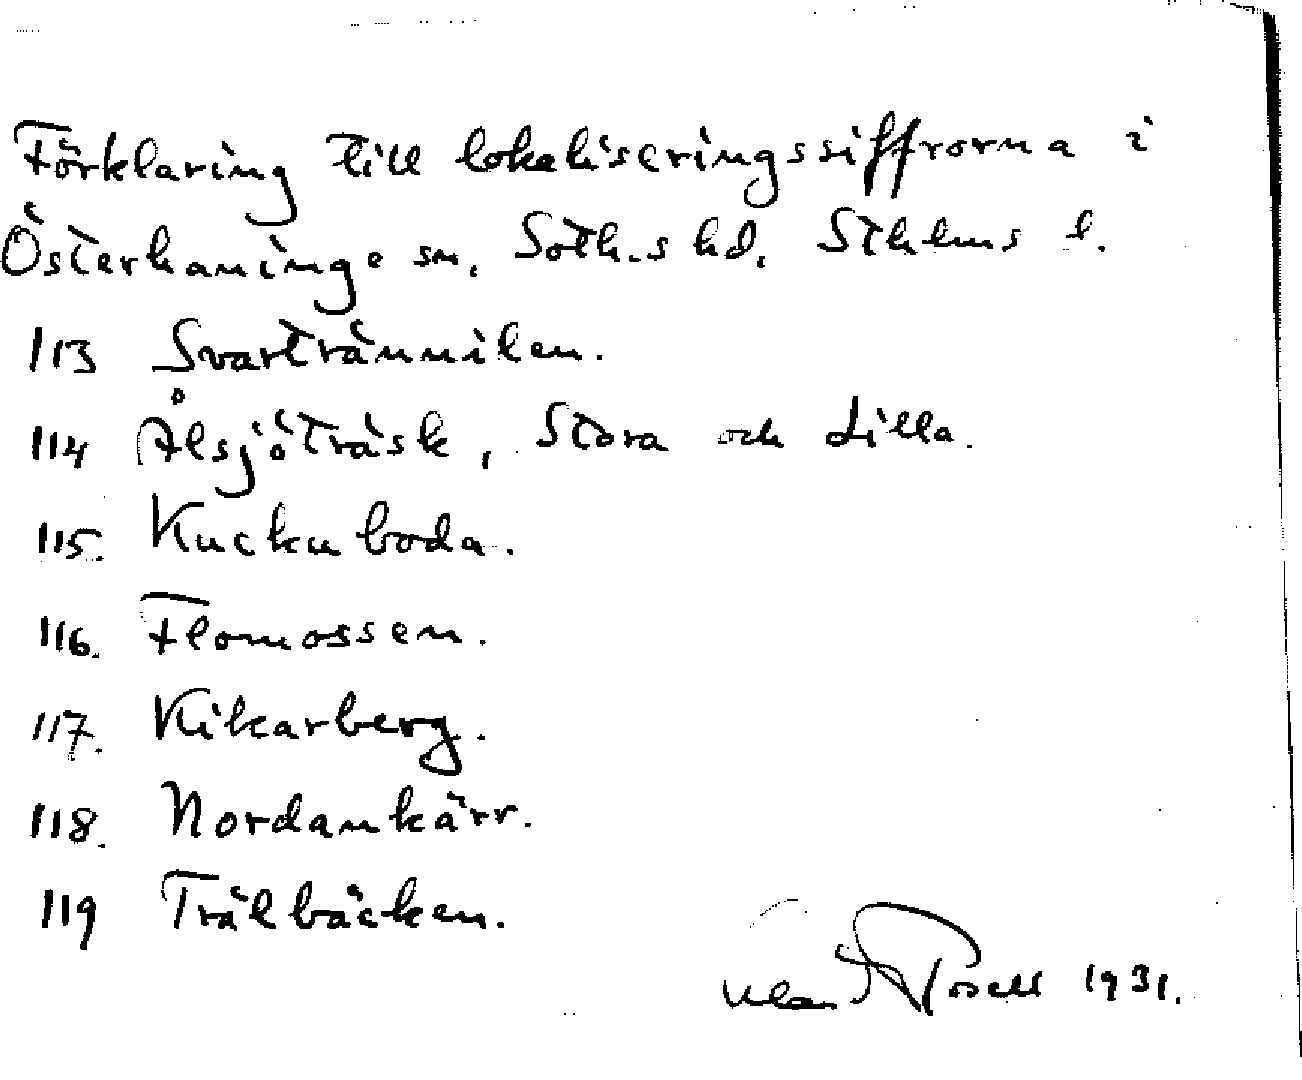 Förklaring till lokaliseringssiffrorna i
Österhaninge sn, Soth.s hd, Sthlms l.
113 Svartrännilen.
114 Ålsjöträsk, Stora och Lilla.
115. Kuckuboda.
116. Flomossen.
117. Kikarberg.
118. Nordankärr.
119 Trälbäcken.
1931.